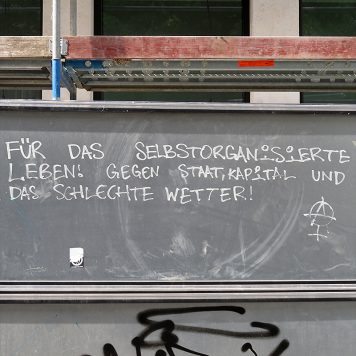 FÜR DAS SELBSTORGANiSiERTE
LEBEN! GEGEN STAAT, KAPiTAL UND
DAS SCHLECHTE WETTER!